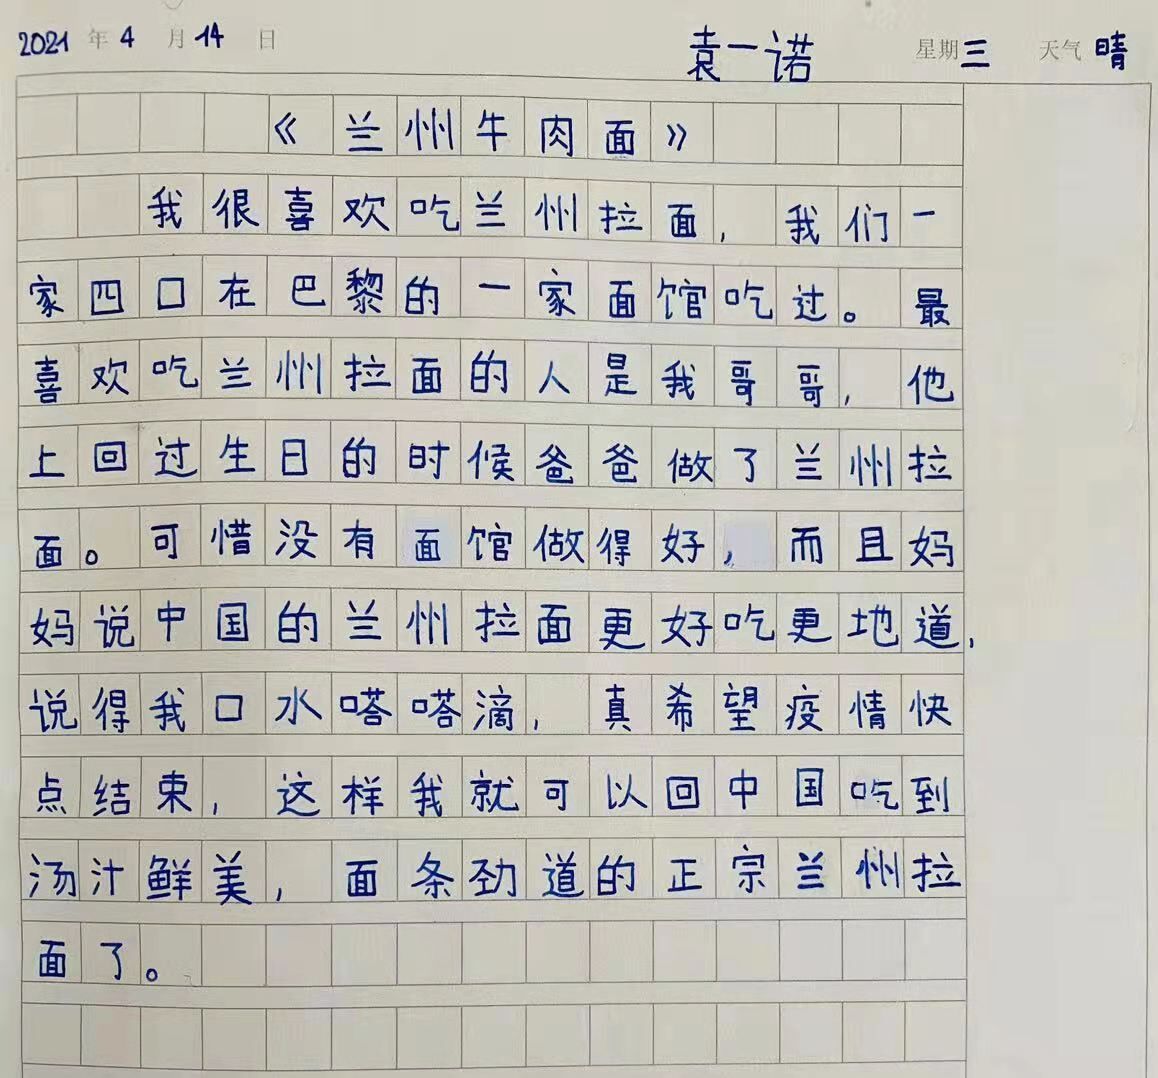 2021年4月14日 袁一诺 星期三 天气晴
《兰州牛肉面》
我很喜欢吃兰州拉面，我们一
家四口在巴黎的一家面馆吃过。最
喜欢吃兰州拉面的人是我哥哥，他
上回过生日的时候爸爸做了兰州拉
面。可惜没有面馆做得好，而且妈
妈说中国的兰州拉面更好吃更地道，
说得我口水嗒嗒滴，真希望疫情快
点结束，这样我就可以回中国吃到
汤汁鲜美，面条劲道的正宗兰州拉
面了。